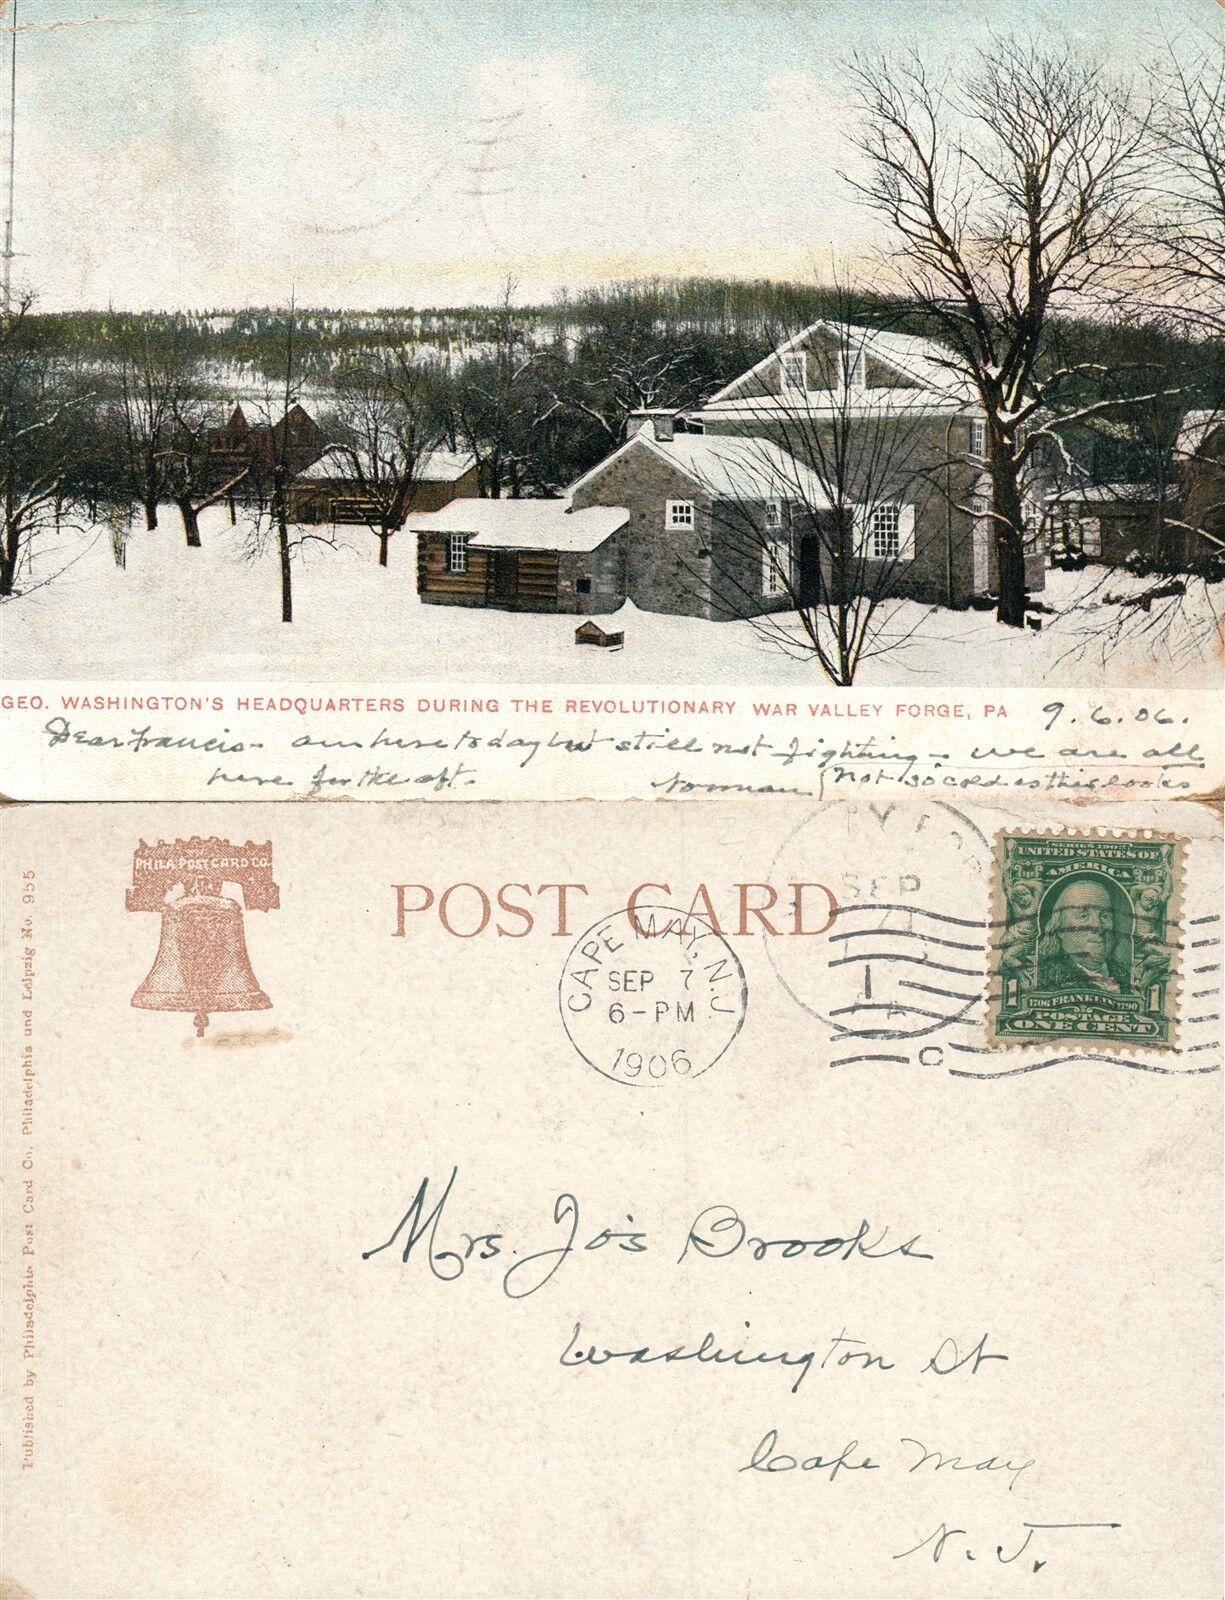 GEO. WASHINGTON'S HEADQUARTERS DURING THE REVOLUTIONARY WAR VALLEY FORGE, PA
9.6.06.
Dear Francis - am here today but still not fighting - we are all
here for the aft. Norman { Not so cold as this looks
PHILA POST CARD CO.
POST CARD
CAPE MAY, N.J.
SEP 7
6-PM
1906
SEP
7
1
PA
C
SERIES 1902
UNITED STATES OF
AMERICA
1706 FRANKLIN 1790
1 1
POSTAGE
ONE CENT
Published by Philadelphia Post Card Co. Philadelphia und Leipzig No. 955
Mrs. Jo's Brooks
Washington St
Cape May
N. J.